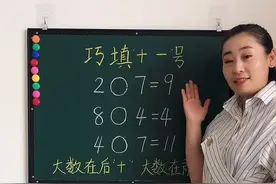 巧填"+-"号
2○7=9
8○4=4
4○7=11
大数在后"+" 大数在前